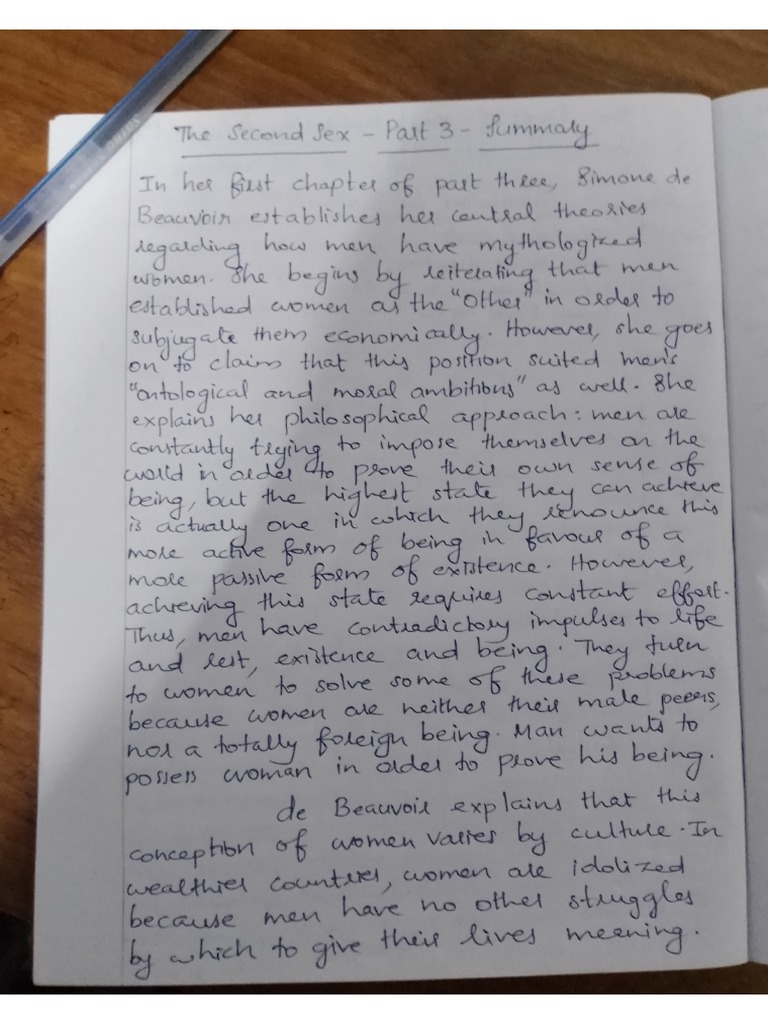 The Second Sex - Part 3 - Summary
In her first chapter of part three, Simone de
Beauvoir establishes her central theories
regarding how men have mythologized
women. She begins by reiterating that men
established women as the "Other" in order to
subjugate them economically. However, she goes
on to claim that this position suited men's
"ontological and moral ambitions" as well. She
explains her philosophical approach: men are
constantly trying to impose themselves on the
world in order to prove their own sense of
being, but the highest state they can achieve
is actually one in which they renounce this
more active form of being in favour of a
more passive form of existence. However,
achieving this state requires constant effort.
Thus, men have contradictory impulses to life
and rest, existence and being. They turn
to women to solve some of these problems
because women are neither their male peers,
nor a totally foreign being. Man wants to
possess woman in order to prove his being.
de Beauvoir explains that this
conception of women varies by culture. In
wealthier countries, women are idolized
because men have no other struggles
by which to give their lives meaning.